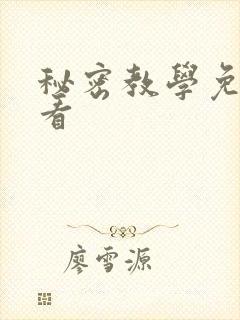 秘密教學免
看
廖雪源